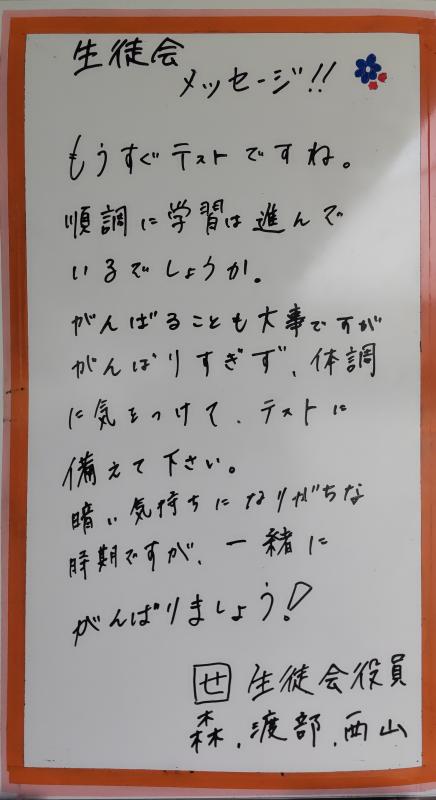 生徒会
メッセージ!!
もうすぐテストですね。
順調に学習は進んで
いるでしょうか。
がんばることも大事ですが
がんばりすぎず、体調
に気をつけて、テストに
備えて下さい。
暗い気持ちになりがちな
時期ですが、一緒に
がんばりましょう!
せ 生徒会役員
森、渡部、西山